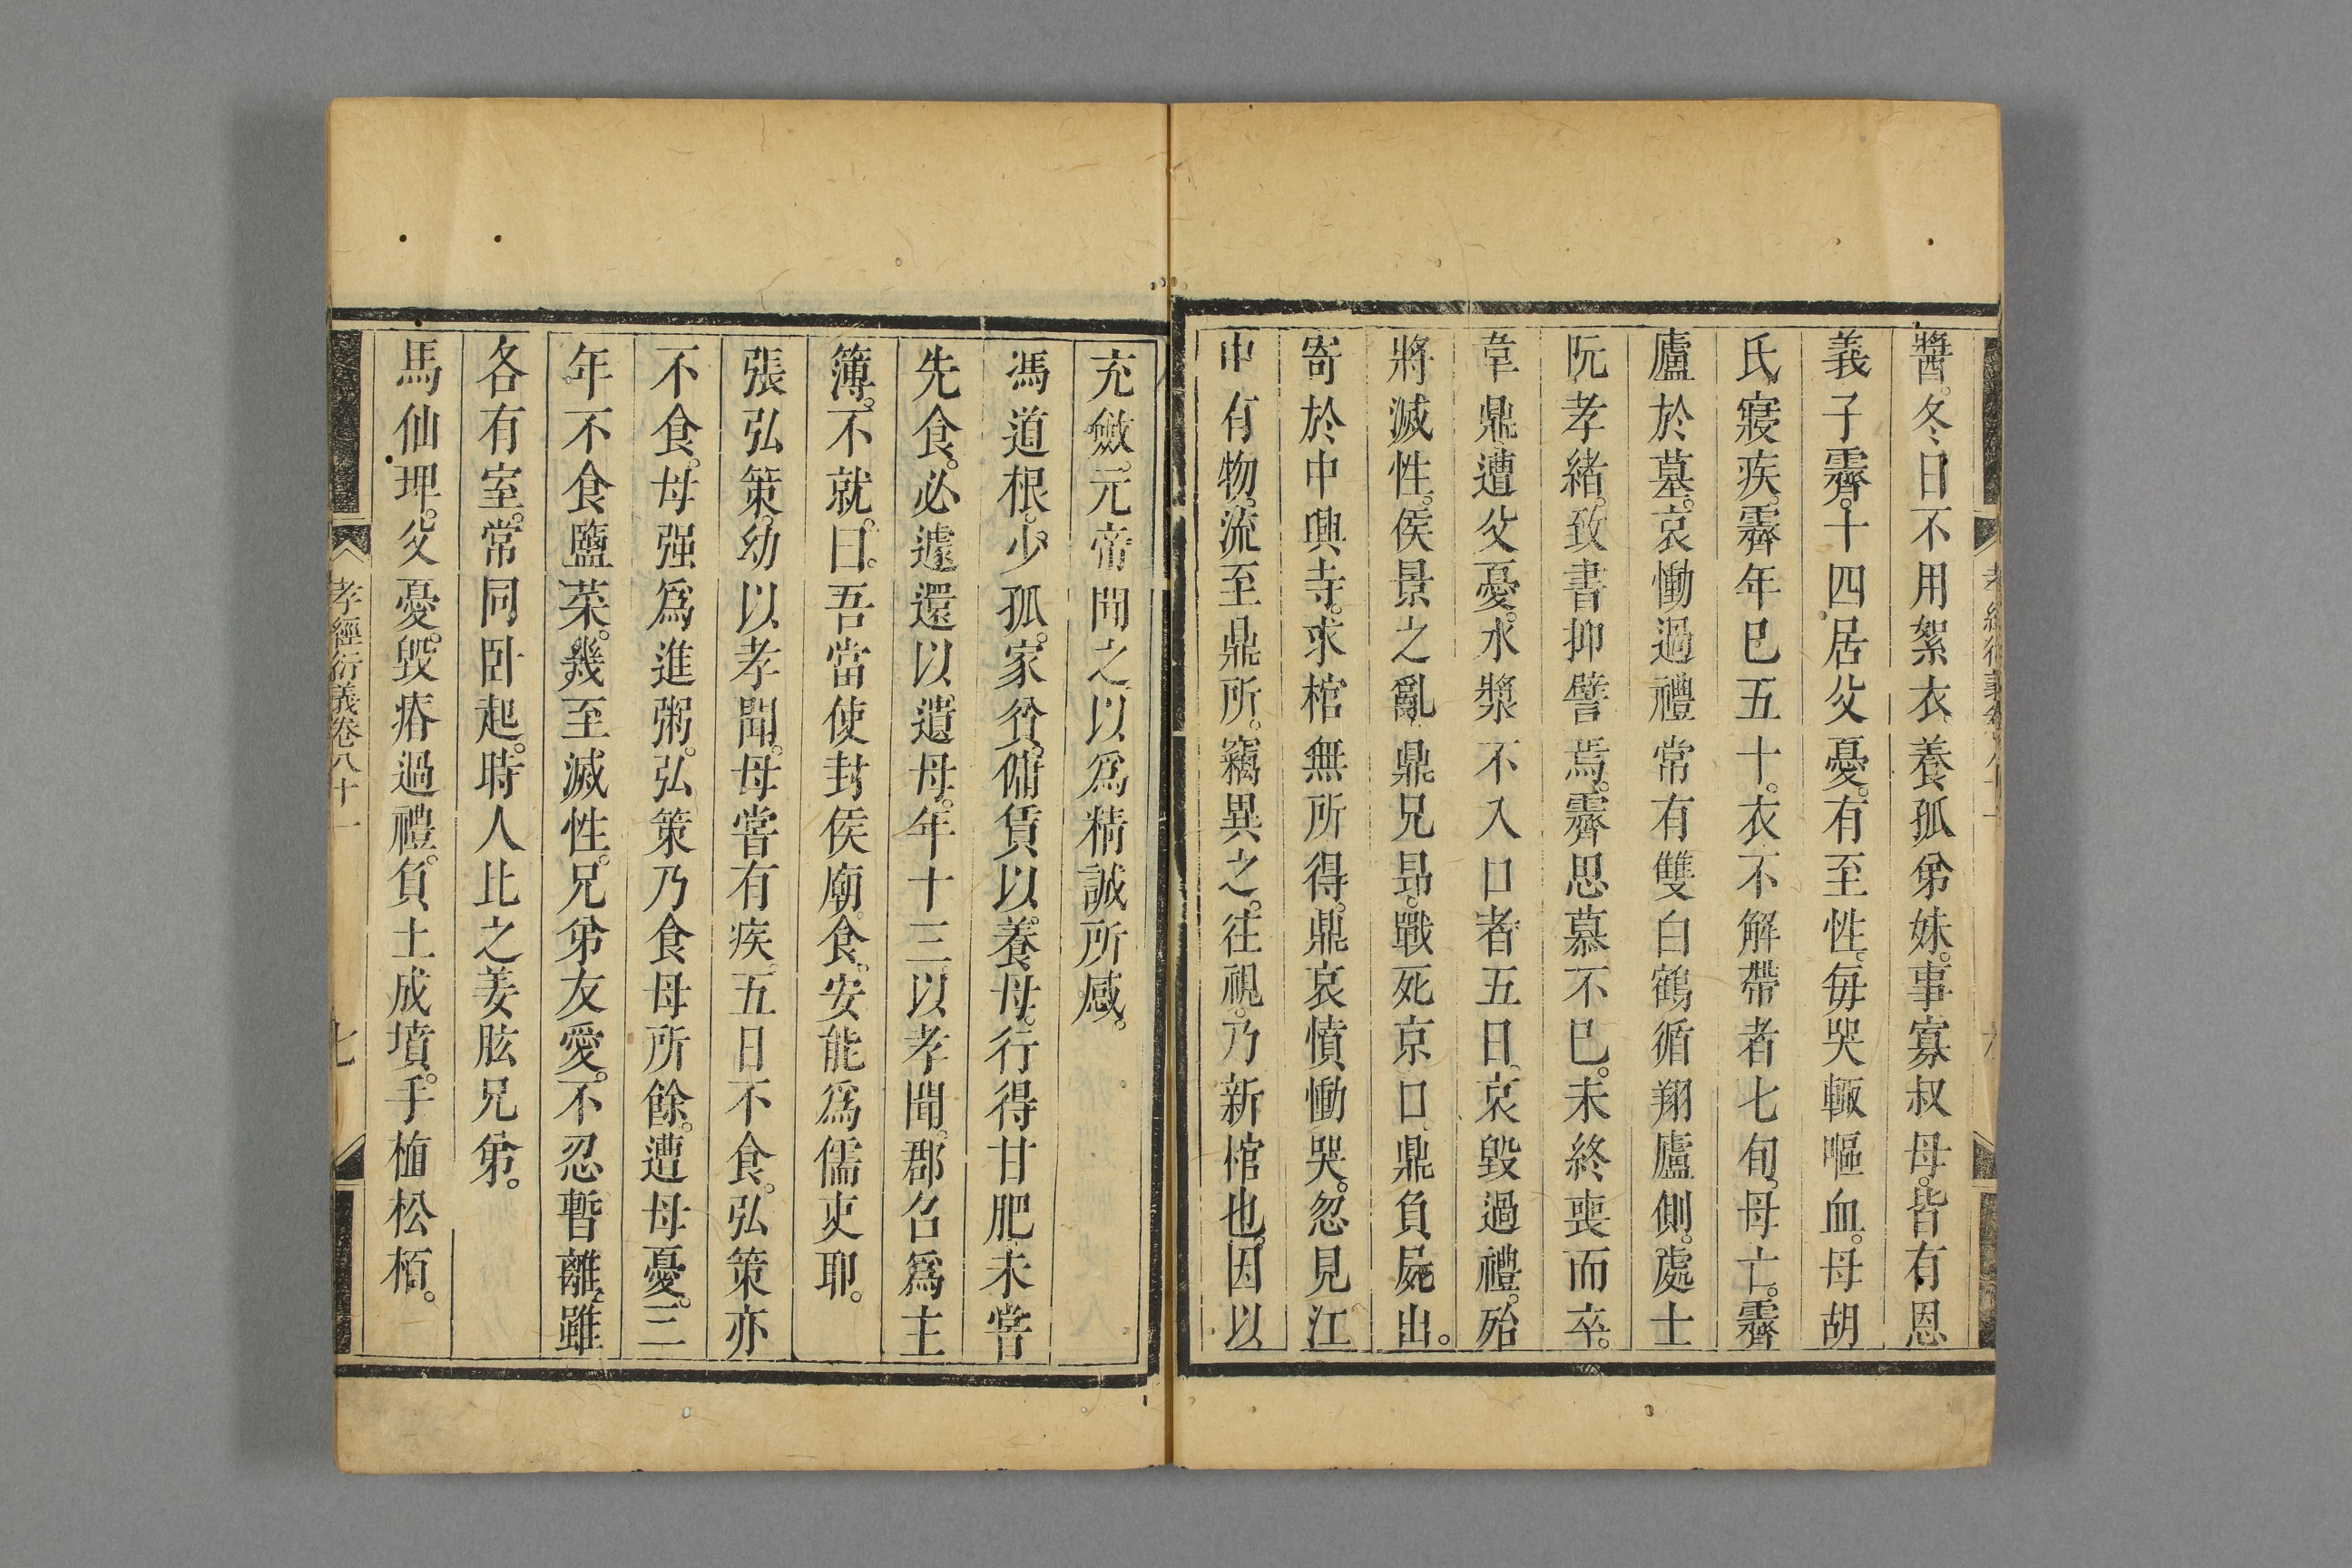 醬。冬日不用絮衣、養孤弟妹。事寡叔母。皆有恩
義子霽。十四居父憂。有至性。每哭輒嘔血。母胡
氏寢疾。霽年已五十。衣不解帶者七旬。母亡。霽
廬於墓。哀慟過禮常有雙白鶴循翔廬側。處士
阮孝緒。致書抑譬焉。霽思慕不已。未終喪而卒。
韋鼎遭父憂。水漿不入口者五日、哀毀過禮。殆
將滅性。侯景之亂鼎兄昻。戰死京口、鼎負屍出。
寄於中興寺。求棺無所得。鼎哀憤慟哭。忽見江
中有物。流至鼎所。竊異之。往視。乃新棺也。因以
充斂。元帝聞之、以爲精誠所感。
馮道根。少孤。家貧。傭賃以養母。行得甘肥未嘗
先食。必遽還以遺母。年十三以孝聞。郡召爲主
簿。不就。曰。吾當使封侯廟食。安能爲儒吏耶。
張弘策。幼以孝聞。母嘗有疾。五日不食。弘策亦
不食。母强爲進粥。弘策乃食母所餘。遭母憂。三
年不食鹽菜。幾至滅性。兄弟友愛。不忍暫離。雖
各有室。常同卧起。時人比之姜肱兄弟。
馬仙琕。父憂。毀瘠過禮。負土成墳。手植松栢。
孝經衍義卷八十一
七